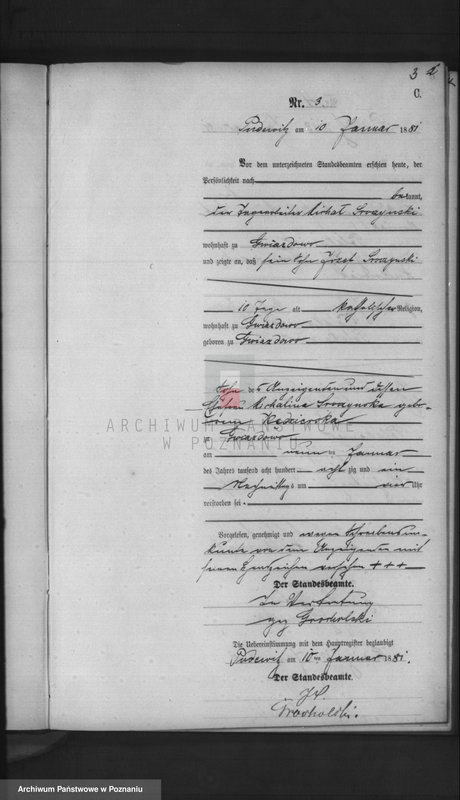 3
C.
Nr. 3.
Pudewitz am 10 Januar 1881
Vor dem unterzeichneten Standesbeamten erschien heute, der
Persönlichkeit nach
bekannt,
der Tagearbeiter Michał Sroczynski
wohnhaft zu Gwiazdowo
und zeigte an, daß sein Sohn Józef Sroczynski
10 Tage alt katholischer Religion,
wohnhaft zu Gwiazdowo
geboren zu Gwiazdowo
Sohn des Anzeigenden und dessen
Ehefrau Michalina Sroczynska gebo-
renen
zu Gwiazdowo
am neun ten Januar
des Jahres tausend acht hundert acht zig und ein
Nachmittags um vier Uhr
verstorben sei.
Vorgelesen, genehmigt und wegen Schreibensun-
kunde von dem Anzeigenden mit
seinem Handzeichen versehen +++
Der Standesbeamte.
In Vertretung
gez Grocholski
Die Uebereinstimmung mit dem Hauptregister beglaubigt
Pudewitz am 10ten Januar 1881.
Der Standesbeamte.
Grocholski.
ARCHIWUM PAŃSTWOWE
W POZNANIU
Archiwum Państwowe w Poznaniu